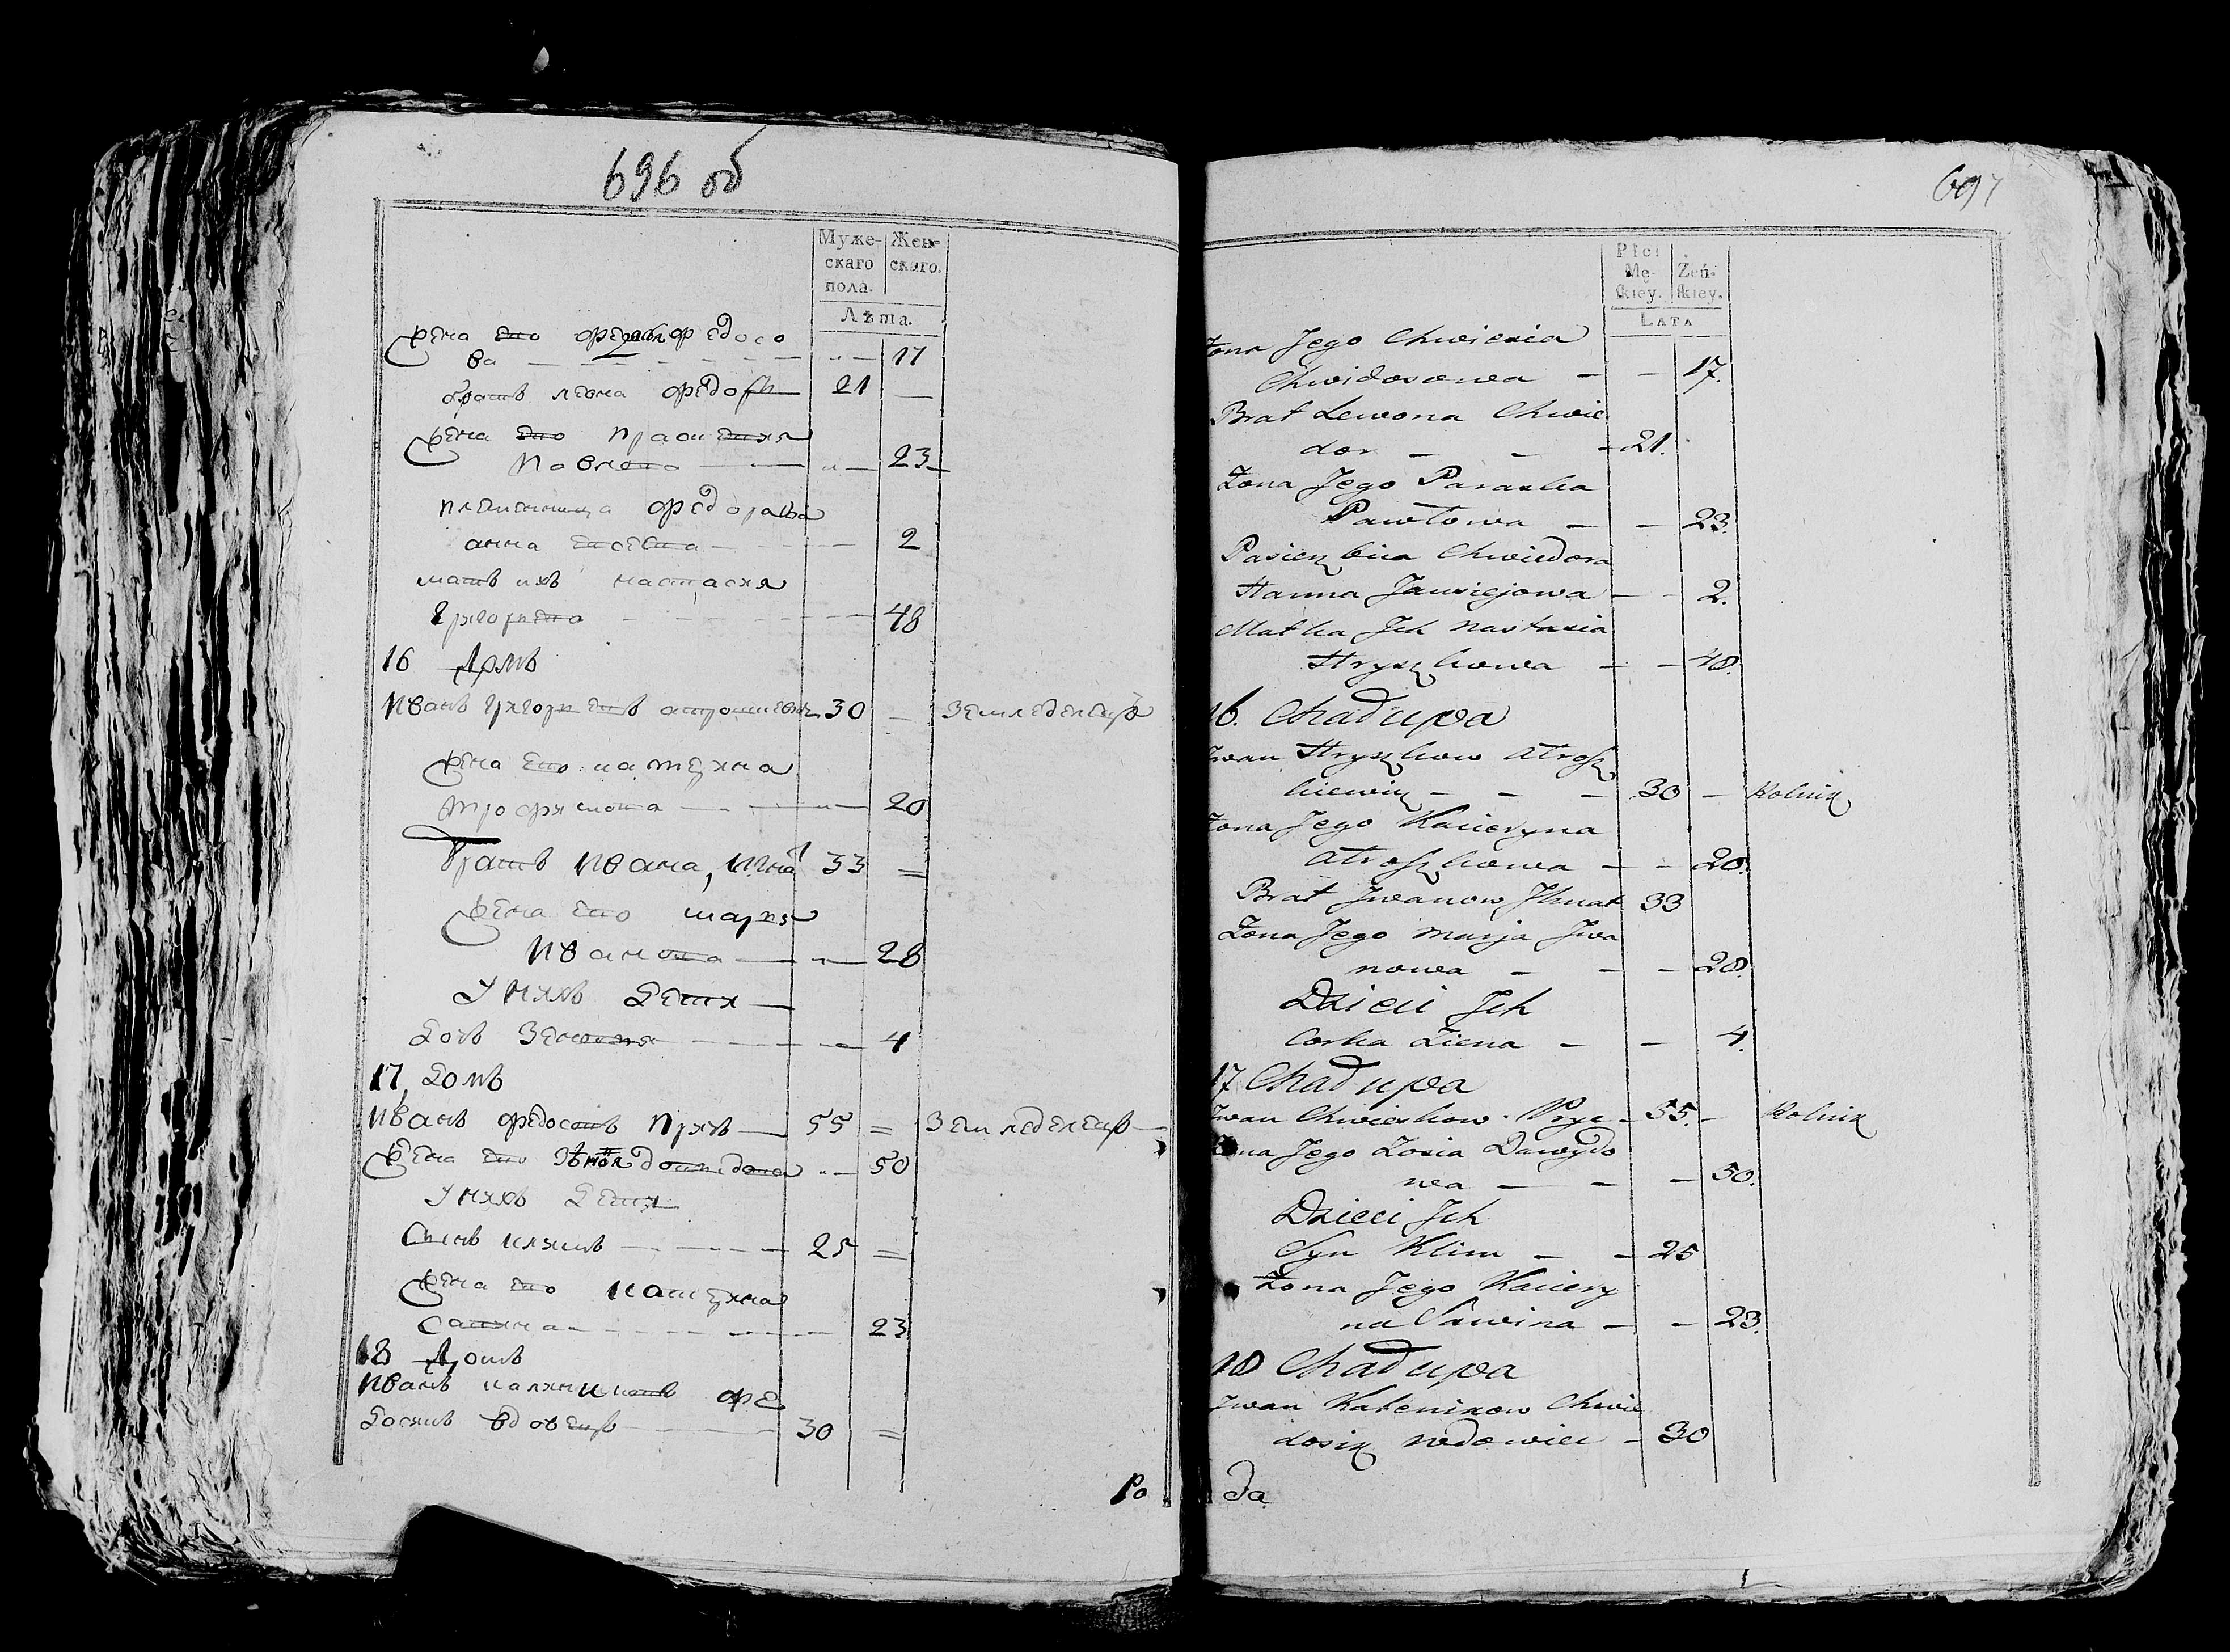 696 об
Муже- Жен-
скаго скаго.
пола.
Лѣта.
жена его
ва — 17
братъ леона федоръ 21 —
жена его прасиция
павлова — 23
племенница федорава
анна евсеева — 2
мать ихъ настасия
григориева — 48
16 Домъ
Иванъ григориевъ 30 — Земледелецъ
жена его катерина
трофимова — 20
братъ Ивана, игнат 33 =
жена его марья
Иванова — 28
У нихъ дети
дочь Зеновия — 4
17, домъ
Иванъ федосовъ 55 = Земледелецъ
жена его 50
У нихъ дети
Сынъ климъ — 25 =
жена его катерина
савина — 23
18 Домъ
Иванъ калиниковъ фе
досикъ вдовецъ — 30 =
Ро
697
Płci
Mę- Żeń-
skiey. skiey.
LATA
Zona Jego Chwienia
Chwidosowa — — 17.
Brat Lewona Chwie
dor — — 21.
Zona Jego Paraska
Pawłowa — — 23.
Pasierzbica Chwiedora
Hanna Jawsiejowa — — 2.
Matka Jch Nastazia
Hryszkowa — — 48.
16. Chałupa
Jwan Hryszkow Atrosz
kiewicz — — 30 — Rolnik
Zona Jego Kacieryna
Atroszkowa — — 20.
Brat Jwanow Jhnat 33
Zona Jego Marja Jwa
nowa — — 28.
Dzieci Jch
Corka Ziena — — 4.
17 Chałupa
Jwan Chwieskow Pryc — 55. — Rolnik
Zona Jego Zosia Dawydo
wa — — 50.
Dzieci Jch
Syn Klim — — 25
Zona Jego Kaciery
na Sawina — — 23.
18 Chałupa
Jwan Kalenikow Chwie
dosik wdowiec — 30
da